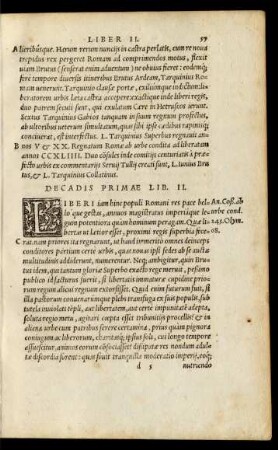 LIBER II. 57
Allerchúsque. Harum rerum nuncijs in castra perlatis, cum re noua
trepidus rex pergeret Romam ad comprimendos motus, flexit
uiam Brutus (senserat enim aduentum) ne obuius fieret: eodem;
fere tempore diuersis itineribus Brutus Ardeam, Tarquinius Ro-
mam uenerunt. Tarquinio clausæ portæ, exiliumque indictum: li-
beratorem urbis læta castra accepere: exactique inde liberi regis,
duo patrem secuti sunt, qui exulatum Cære in Hetruscos ierunt.
Sextus Tarquinius Gabios tanquam in suum regnum profectus,
ab ultoribus ueterum simultatum, quas sibi ipse cædibus rapinisq;
conciuerat, est interfectus. L. Tarquinius Superbus regnauit an-
nos V & XX. Regnatum Romæ ab urbe condita ad liberatam
annos CCXLIIII. Duo cōsules inde comitijs centuriatis à præ-
fecto urbis ex commentarijs Seruij Tullij creati sunt, L. Iunius Bru-
tus, & L. Tarquinius Collatinus.
DECADIS PRIMAE LIB. II.
LIBERI iam hinc populi Romani res pace bel-
lo que gestas, annuos magistratus, imperiaque le-
gum potentiora quàm hominum peragam. Quæ li-
bertas ut lætior esset, proximi regis superbia fece-
rat. nam priores ita regnarunt, ut haud immerito omnes deinceps
conditores partium certe urbis, quas nouas ipsi sedes ab se auctæ
multitudinis addiderunt, numerentur. Neq; ambigitur, quin Bru-
tus idem, qui tantum gloriæ Superbo exacto rege meruit, pessimo
publico id facturus fuerit, si libertatis immaturæ cupidine priorum
regum alicui regnum extorsisset. Quid enim futurum fuit, si
illa pastorum conuenarumque plebs transfuga ex suis populis, sub
tutela inuiolati templi, aut libertatem, aut certe impunitatē adepta,
soluta regio metu, agitari cœpta esset tribunitijs procellis? & in
aliena urbe cum patribus serere certamina, prius quàm pignora
coniugum ac liberorum, charitasq; ipsius soli, cui longo tempore
assuescitur, animos eorum consociasset? dissipatæ res nondum adul-
tæ discordia forent: quas fouit tranquilla moderatio imperij, eoq;
d 5 nutriendo
An. Coss.ab
urbe cond.
245. Olym.
68.